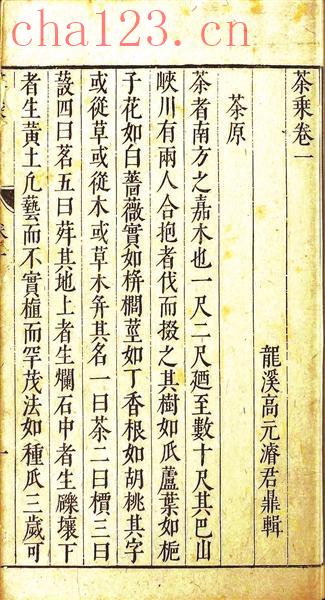 cha123.cn
茶乘卷一
龍溪高元濬君鼎輯
茶原
茶者南方之嘉木也一尺二尺廼至數十尺其巴山
峽川有兩人合抱者伐而掇之其樹如瓜蘆葉如梔
子花如白薔薇實如栟櫚莖如丁香根如胡桃其字
或從草或從木或草木并其名一曰茶二曰檟三曰
蔎四曰茗五曰荈其地上者生爛石中者生礫壤下
者生黃土凢藝而不實植而罕茂法如種瓜三歲可